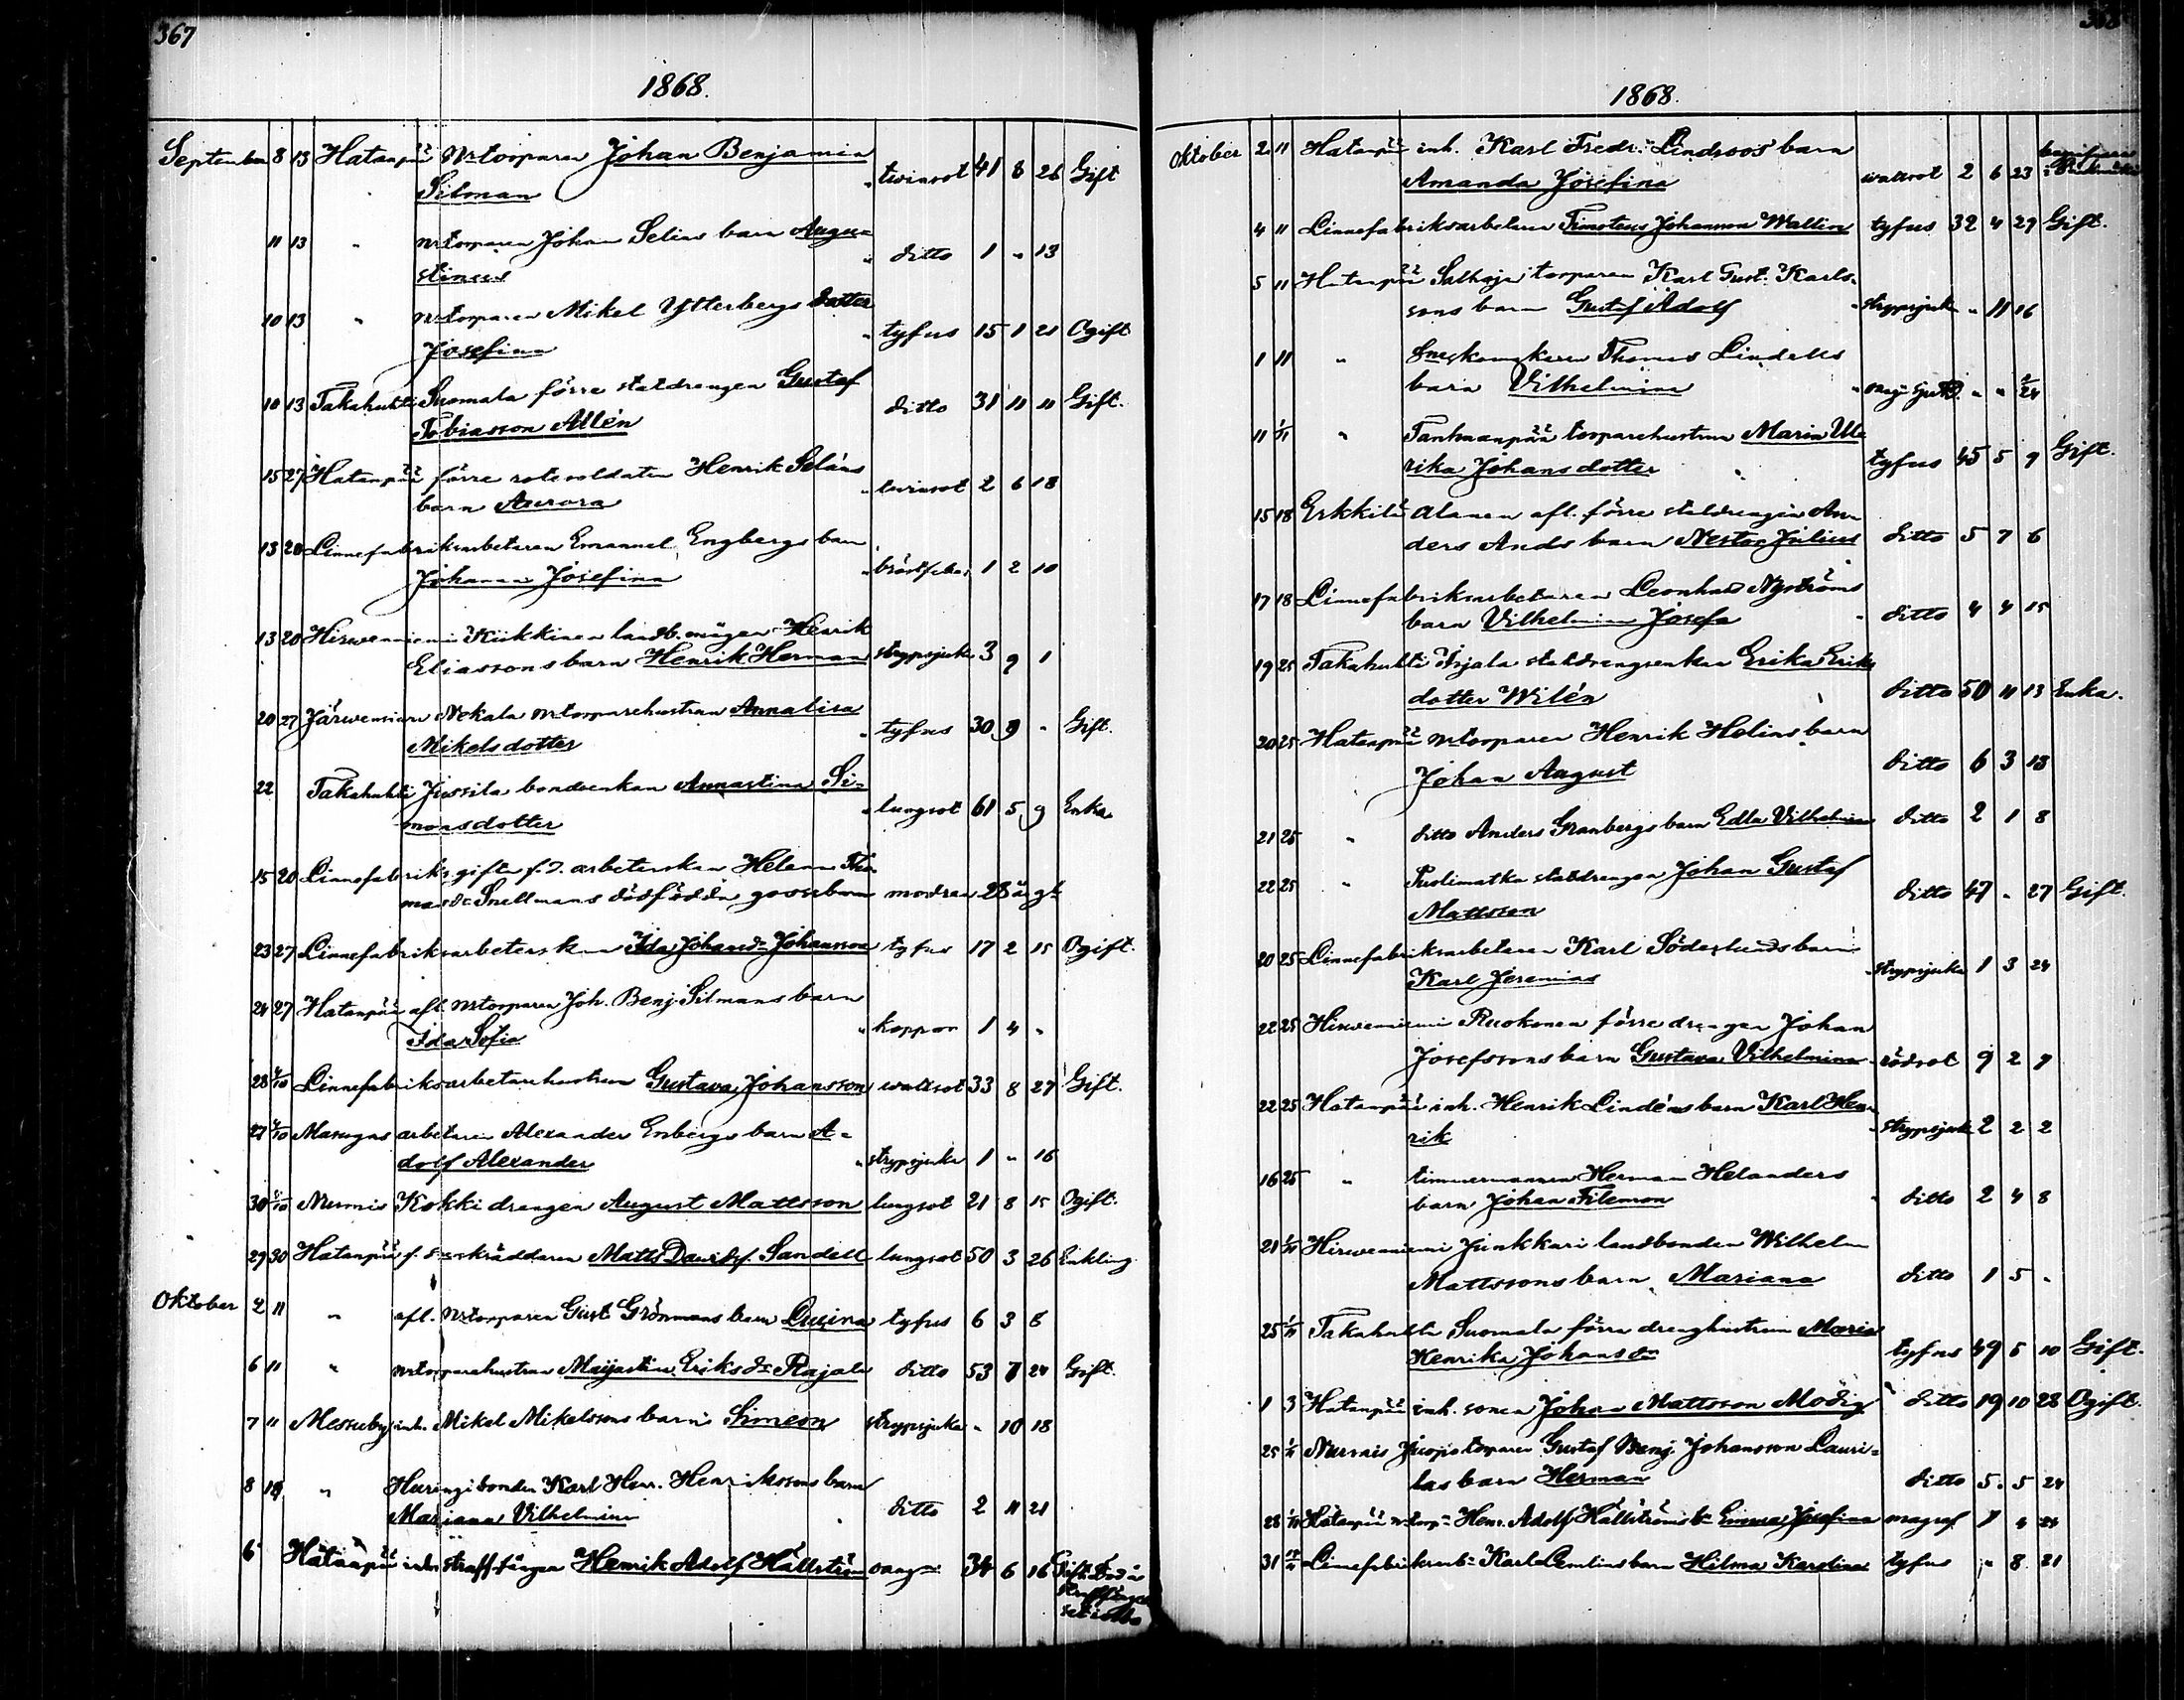 367
1868.
September 8 13 Hatanpää Mtorparen Johan Benjamin
Silman " twinsot 41 8 26 Gift
11 13 " Mtorparen Johan Selins barn Augu=
stinus " ditto 1 " 13
10 13 " Mtorparen Mikel Ytterbergs dotter
Josefina " tyfus 15 1 21 Ogift
10 13 Takahuhti Suomala förre statdrengen Gustaf
Tobiasson Allén ditto 31 11 11 Gift.
15 27 Hatanpää förre rotesoldaten Henrik Seléns
barn Aurora " twinsot 2 6 18
13 20 Linnefabriksarbetaren Emanuel Engbergs barn
Johanna Josefina " bröstfeber 1 2 10
13 20 Hirwenniemi Kiikkinen landb. mågen Henrik
Eliassons barn Henrik Herman strypsjuka 3 9 1
20 27 Järwensivu Nekala Mtorparehustrun Annalisa
Mikelsdotter " tyfus 30 9 " Gift.
22 Takahuhti Jussila bondeenkan Annastina Si=
monsdotter " lungsot 61 5 9 Enka
15 20 Linnefabriks gifta f.d. arbeterskan Helena Tho=
masdr Snellmans dödfödda gossebarn modren 28 år gl
23 27 Linnefabriksarbeterskan Ida Johansdr Johansson tyfus 17 2 15 Ogift.
24 27 Hatanpää afl. Mtorparen Joh. Benj. Silmans barn
Ida Sofia " koppor 1 4 "
28 4/10 Linnefabriksarbetarehustrun Gustava Johansson wattsot 33 8 27 Gift.
27 4/10 Masugnsarbetaren Alexander Enbergs barn A=
dolf Alexander " strypsjuka 1 " 16
30 4/10 Nurmis Kokki drengen August Mattsson lungsot 21 8 15 Ogift.
29 30 Hatanpää f. skräddaren Matts Davidsf. Sandell lungsot 50 3 26 Enkling
Oktober 2 11 " afl. Mtorparen Gust Grönmans barn Lucina tyfus 6 3 6
6 11 " Mtorparehustrun Maijastina Eriksdr Rajala ditto 53 7 24 Gift.
7 11 Messuby inh. Mikel Mikelssons barn Simeon strypsjuka " 10 18
8 18 " Huringi bonden Karl Henr. Henrikssons barn
Mariana Vilhelmina ditto 2 11 21
6 Hatanpää inh. straffången Henrik Adolf Hällström 34 6 16 Gift. Död i
368
1868.
Oktober 2 11 Hatanpää inh. Karl Fredr. Lindroos barn
Amanda Josefina wattsot 2 6 23
4 11 Linnefabriksarbetaren Timoteus Johansson Wallin tyfus 32 4 29 Gift.
5 11 Hatanpää Salhoja torparen Karl Gust. Karls=
sons barn Gustaf Adolf " strypsjuka " 11 16
1 11 " Thomas Lindells
barn Vilhelmina " " " 1/24
11 1/11 " torparehustrun Maria Ul=
rika Johansdotter tyfus 45 5 9 Gift.
15 18 Erkkilä Alanen afl. förre statdrengen An=
ders Ands barn Nestor Julius ditto 5 7 6
17 18 Linnefabriksarbetaren Leonhard Nyströms
barn Vilhelmina Josefa " ditto 4 4 15
19 25 Takahuhti Irjala statdrengsenkan Erika Eriks
dotter Wilén ditto 50 11 13 Enka.
20 25 Hatanpää Mtorparen Henrik Helins barn
Johan August ditto 6 3 13
21 25 " ditto Anders Granbergs barn Edla Vilhelmina ditto 2 1 8
22 25 " statdrengen Johan Gustaf
Mattsson ditto 47 " 27 Gift.
20 25 Linnefabriksarbetaren Karl Söderlunds barn
Karl Jeremias " strypsjuka 1 3 24
22 25 Hirwenniemi Ruokonen förre drengen Johan
Josefssons barn Gustava Vilhelmina rödsot 9 2 7
22 25 Hatanpää inh. Henrik Lindéns barn Karl Hen=
rik " strypsjuka 2 2 2
16 25 " timmermannen Herman Helanders
barn Johan Filemon " ditto 2 4 8
21 1/11 Hirwenniemi Junkkari landbonden Wilhelm
Mattssons barn Mariana ditto 1 5 "
25 1/11 Takahuhti Suomala förre drenghustrun Maria
Henrika Johansdr tyfus 49 5 10 Gift.
1 3 Hatanpää inh. sonen Johan Mattsson Modig ditto 19 10 28 Ogift.
25 1/11 Nurmis Juopo torparen Gustaf Benj. Johansson Lauri=
las barn Herman ditto 5 5 24
28 1/11 Hatanpää Mtorp. Henr. Adolf Hällströms b. Emma Josefina 7 4 24
31 Linnefabriksarb. Karl barn Hilma Karolina tyfus " 8 21